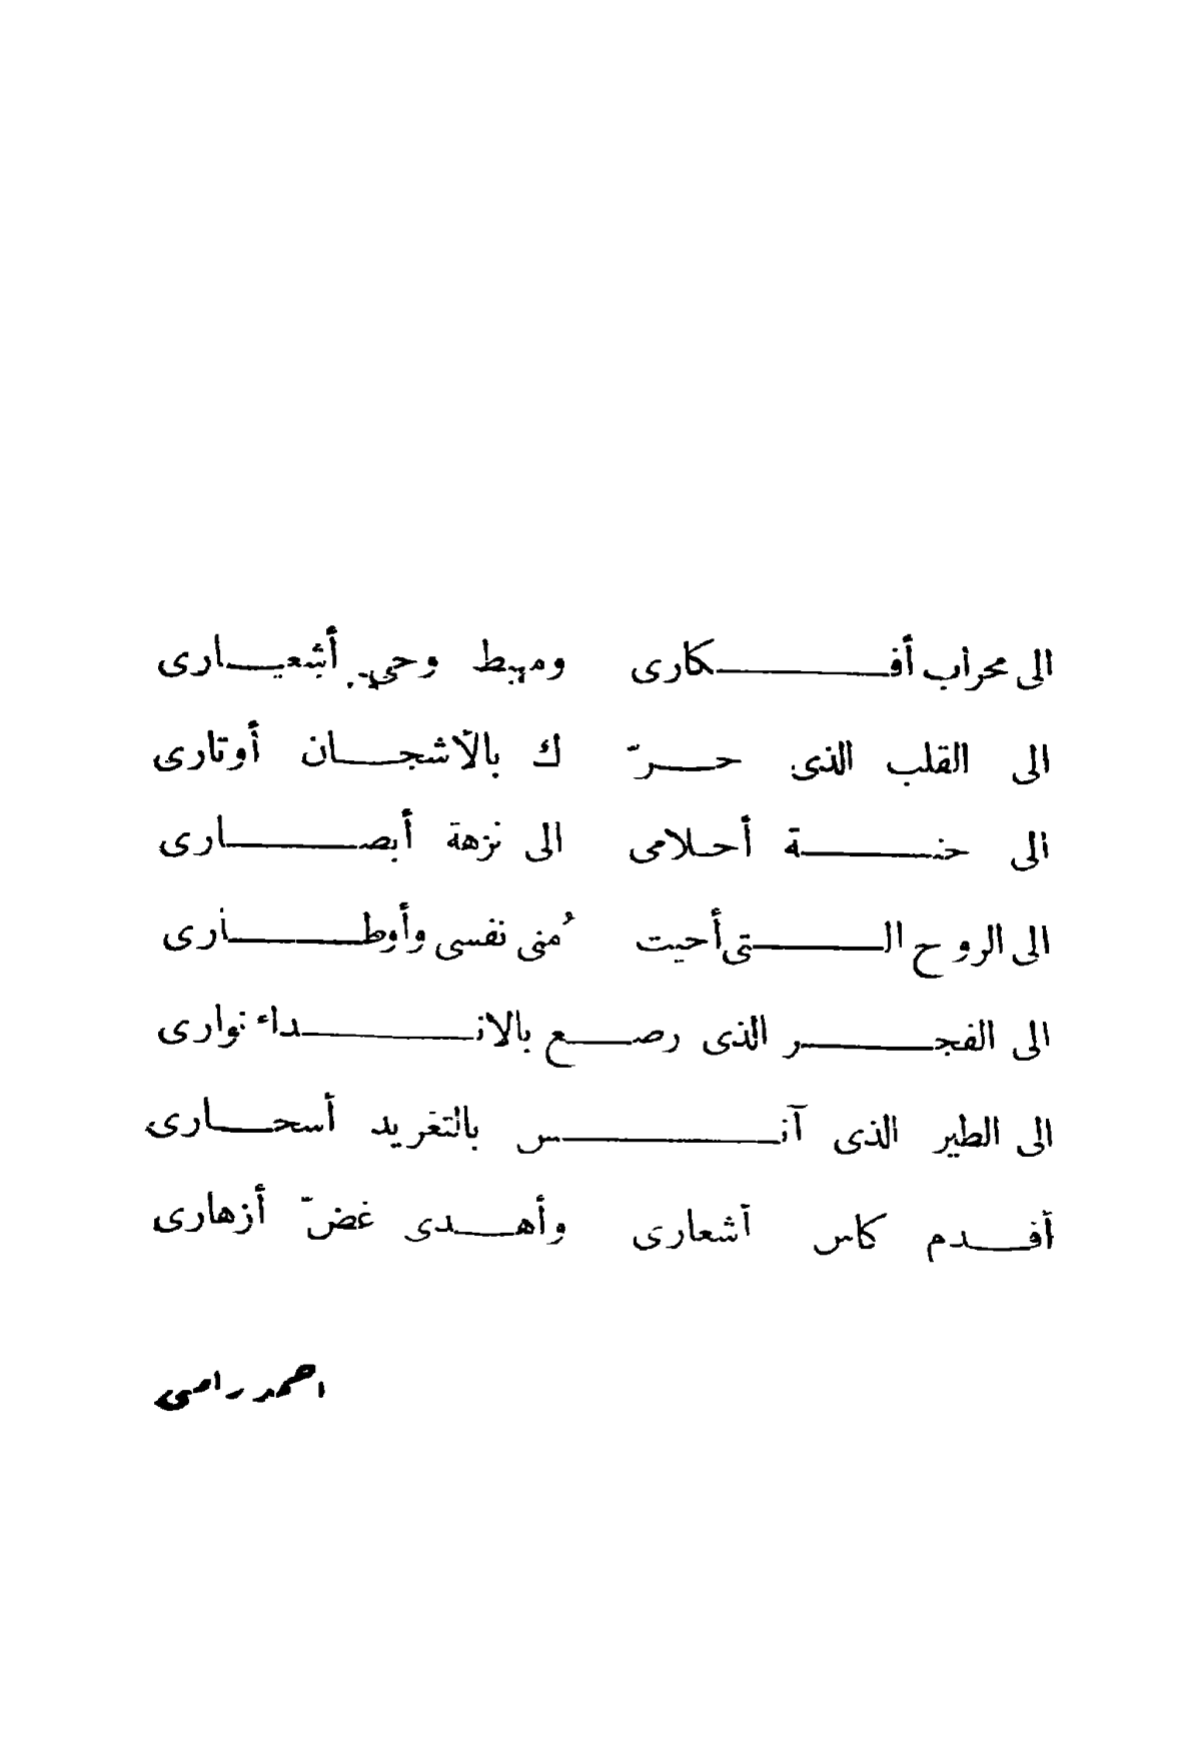 الى محراب أفكارى ومهبط وحي أشعارى
الى القلب الذى حرّ ك بالأشجان أوتارى
الى جنة أحلامى الى نزهة أبصارى
الى الروح التى أحيت مُنى نفسى وأوطارى
الى الفجر الذى رصع بالانداء نوارى
الى الطير الذى آنس بالتغريد أسحارى
أقدم كاس أشعارى وأهدى غضّ أزهارى
احمد رامى